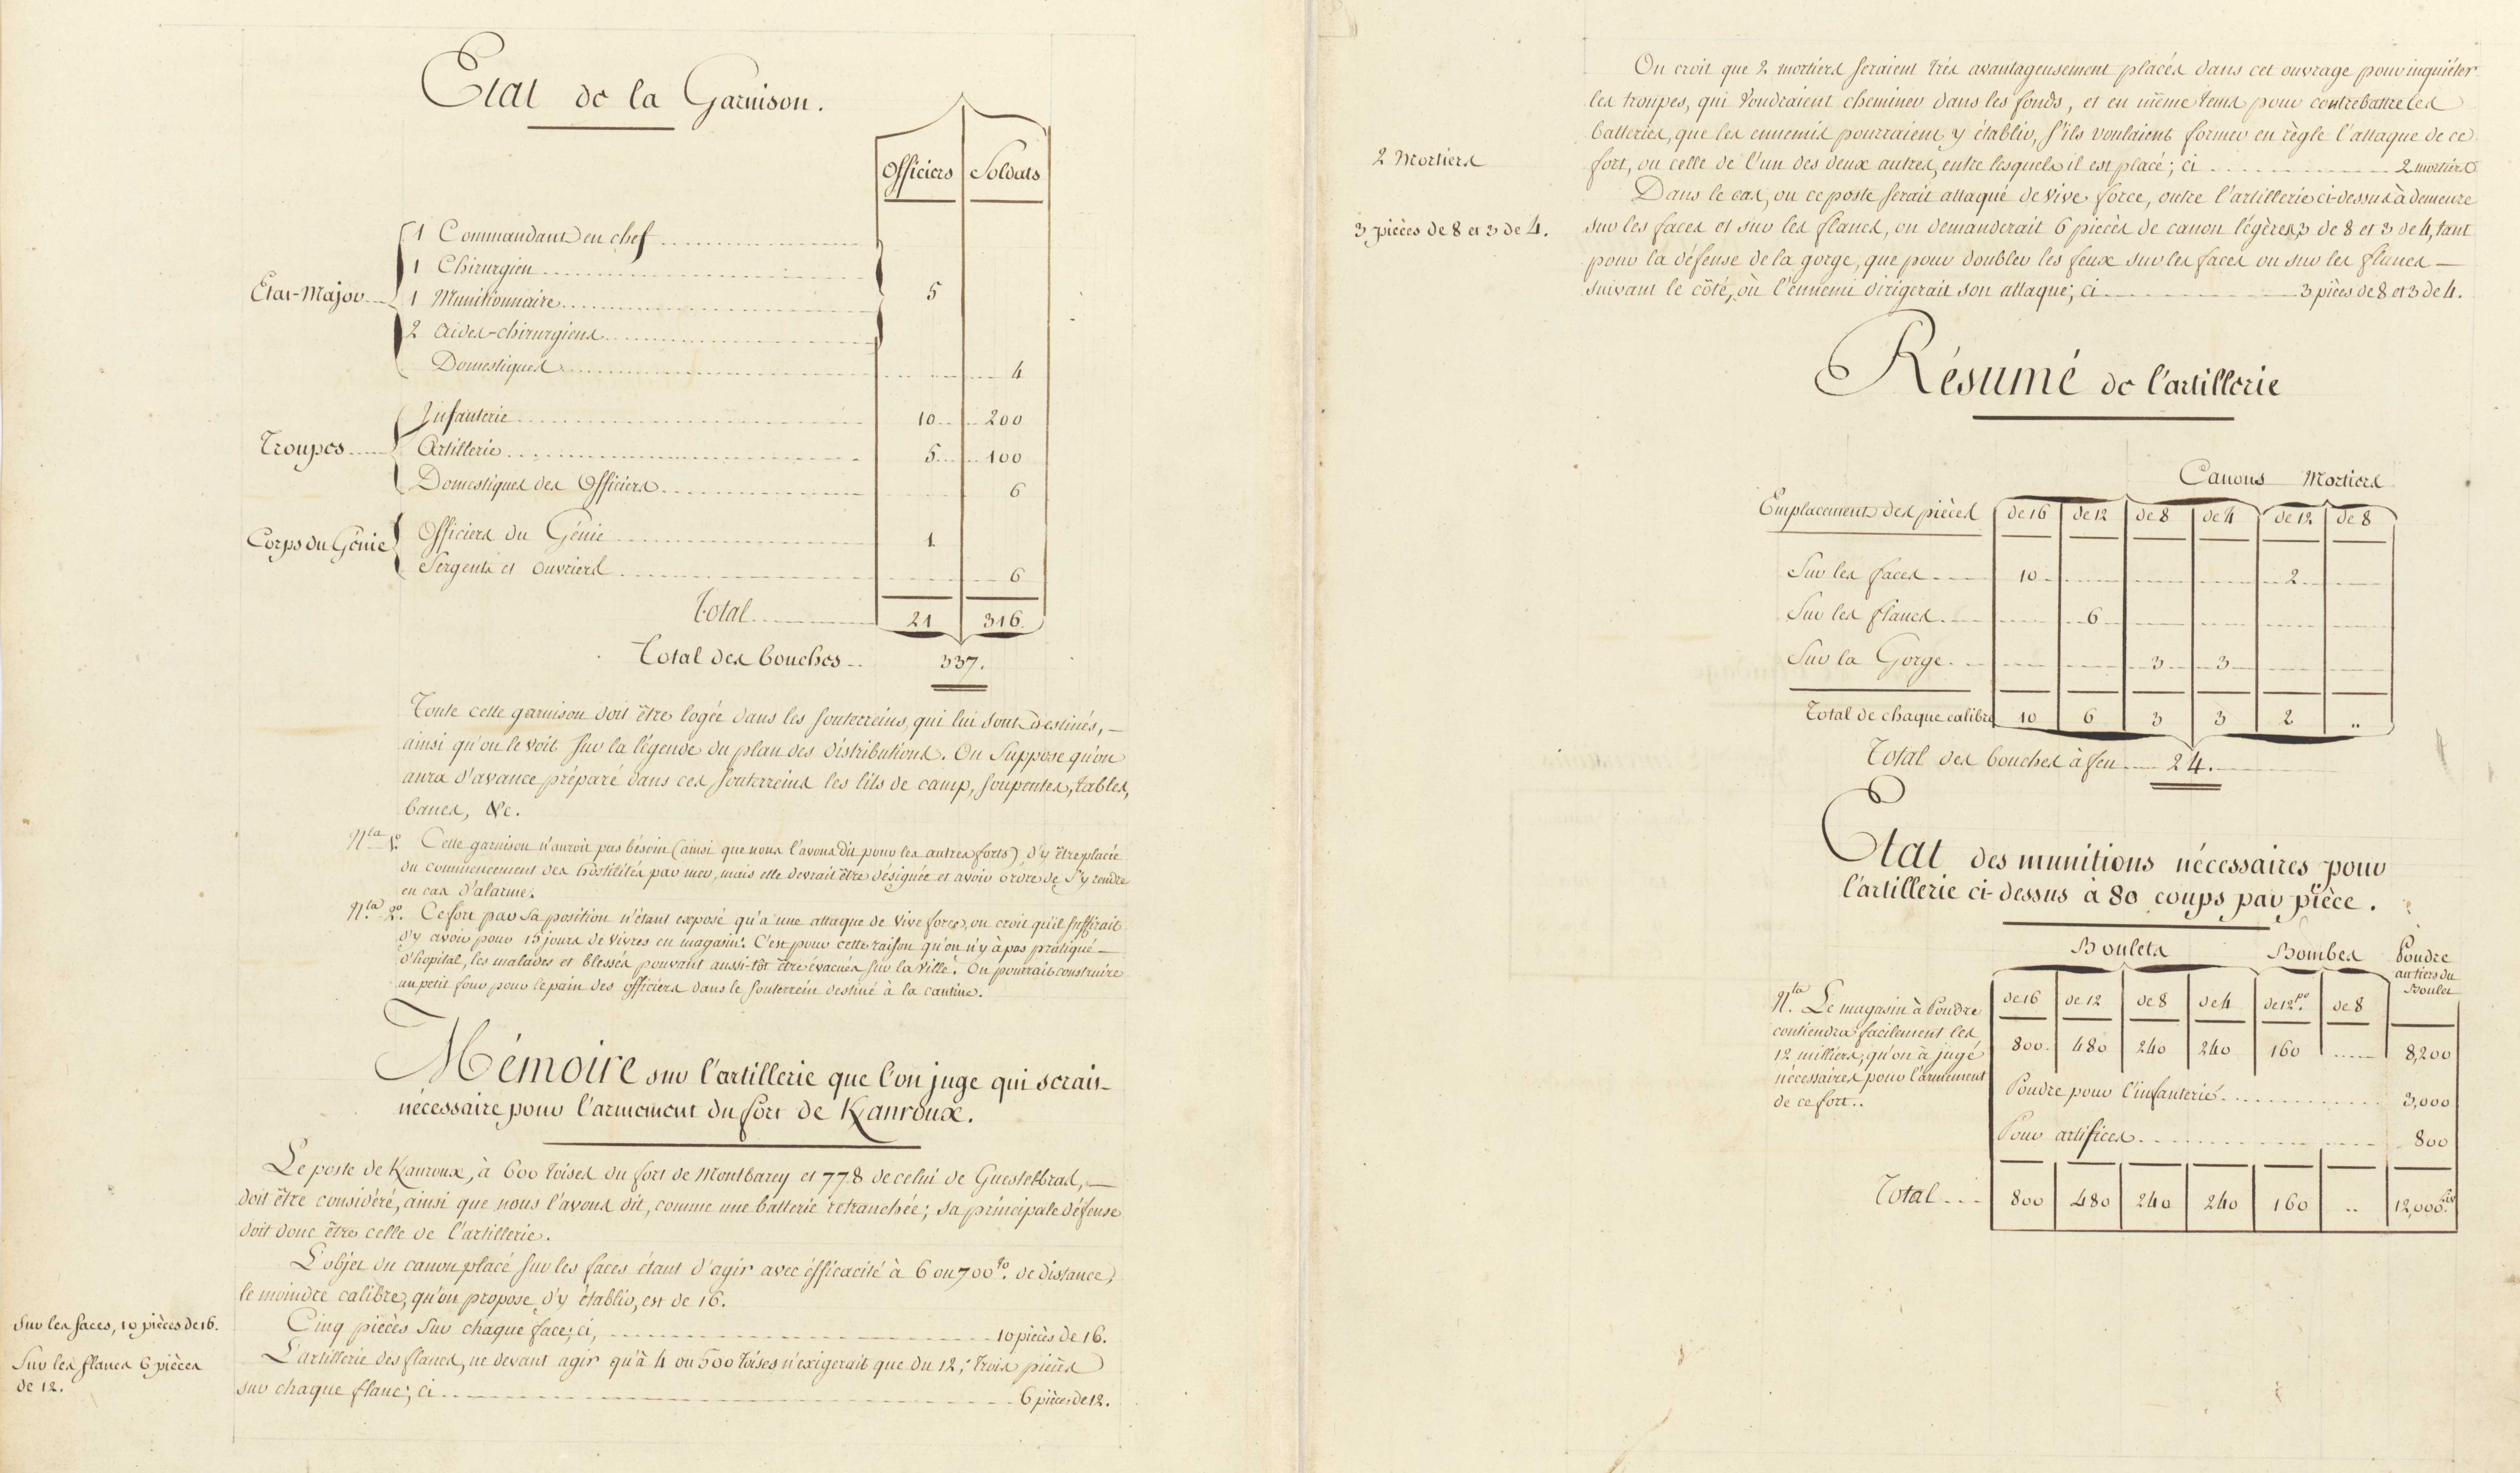 Etat de la Garnison.
Officiers Soldats
1 Commandant en chef
1 Chirurgien
Etat-Major 1 Munitionnaire 5
2 aides-chirurgiens
Domestiques 4
Infanterie 10 200
Troupes Artillerie 5 100
Domestiques des Officiers 6
Corps du Génie Officiers du Génie 1
Sergents et ouvriers 6
Total 21 316
Total des bouches 337.
Toute cette garnison doit être logée dans les souterreins, qui lui sont destinés,
ainsi qu'on le voit sur la légende du plan des distributions. On suppose qu'on
aura d'avance préparé dans ces souterreins les lits de camp, soupentes, tables,
bancs, &c.
N.ta 1.° Cette garnison n'auroit pas bésoin (ainsi que nous l'avons dit pour les autres forts) d'y être placée
au commencement des hostilités par mer, mais elle devrait être désignée et avoir ordre de s'y rendre
en cas d'alarme.
N.ta 2.° Ce fort par sa position n'étant exposé qu'à une attaque de vive force, on croit qu'il suffirait
d'y avoir pour 15 jours de vivres en magasin. C'est pour cette raison qu'on n'y à pas pratiqué
d'hopital, les malades et blessés pouvant aussi-tôt être évacués sur la ville. On pourrait construire
un petit four pour le pain des officiers dans le souterrein destiné à la cantine.
Mémoire sur l'artillerie que l'on juge qui serait
nécessaire pour l'armement du fort de Kanroux.
Le poste de Kanroux, à 600 toises du fort de Montbarey et 778 de celui de Guestelbras,
doit être considéré, ainsi que nous l'avons dit, comme une batterie retranchée; sa principale défense
doit donc être celle de l'artillerie.
L'objet du canon placé sur les faces étant d'agir avec éfficacité à 6 ou 700 to. de distance,
le moindre calibre, qu'on propose d'y établir, est de 16.
Sur les faces, 10 pièces de 16. Cinq pièces sur chaque face; ci, 10 pièces de 16.
Sur les flancs 6 pièces L'artillerie des flancs, ne devant agir qu'à 4 ou 500 toises n'exigerait que du 12; trois pièces
de 12. sur chaque flanc; ci 6 pièces de 12.
On croit que 2 mortiers seraient très avantageusement placés dans cet ouvrage pour inquiéter
les troupes, qui voudraient cheminer dans les fonds, et en même tems pour contrebattre les
batteries, que les ennemis pourraient y établir, s'ils voulaient former en règle l'attaque de ce
2 Mortiers fort, ou celle de l'un des deux autres, entre lesquels il est placé; ci 2 mortiers
Dans le cas, ou ce poste serait attaqué de vive force, outre l'artillerie ci-dessus à demeure
3 pièces de 8 et 3 de 4. sur les faces et sur les flancs, on demanderait 6 pièces de canon légères, 3 de 8 et 3 de 4, tant
pour la défense de la gorge, que pour doubler les feux sur les faces ou sur les flancs
suivant le côté, où l'ennemi dirigerait son attaque; ci 3 pièces de 8 et 3 de 4.
Résumé de l'artillerie
Canons Mortiers
Emplacement des pièces de 16 de 12 de 8 de 4 de 12 de 8
Sur les faces 10 2
Sur les flancs 6
Sur la Gorge 3 3
Total de chaque calibre 10 6 3 3 2 ..
Total des bouches à feu 24.
Etat des munitions nécessaires pour
l'artillerie ci-dessus à 80 coups par pièce.
Boulets Bombes Poudre
au tiers du
Boulet
N.ta Le magasin à Poudre de 16 de 12 de 8 de 4 de 12 po. de 8
contiendra facilement les
12 milliers, qu'on à jugé 800. 480 240 240 160 8,200
nécessaires pour l'armement Poudre pour l'infanterie 3,000
de ce fort..
Pour artifices 800
Total 800 480 240 240 160 .. 12,000. Liv